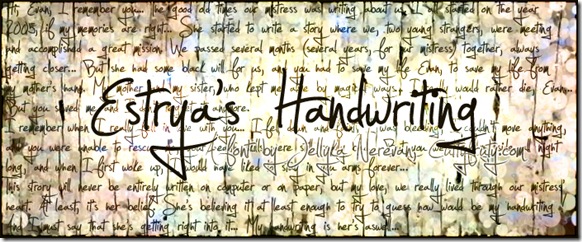 Hi, Evan, I remember you... The good old times our mistress was writing about us. It all started on the year
2005, if my memories are right... She started to write a story where we, two young strangers, were meeting
and accomplished a great mission. We passed several months (several years, for our mistress) together, always
getting closer... But she had some black will for us, and you had to save my life Evan, to save my life from
my mother's hand. My mother and my sister, who kept me alive by magik ways. I would rather die, Evan...
But you saved me and
Estrya's Handwriting
I remember when I really fell in love with you... I fell down and I was bleeding, I couldn't move anything,
and you were unable to rescue
A font by Jellyka Nerevan
night
long, and when I first woke up, I would have liked to stay in your arms forever...
This story will never be entirely written on computer or on paper, but my love, we really lived through our mistress
heart. At least, it's her belief. She's believing it at least enough to try to guess how would be my handwriting
And I must say that she's getting right into it... My handwriting is her's aswell...